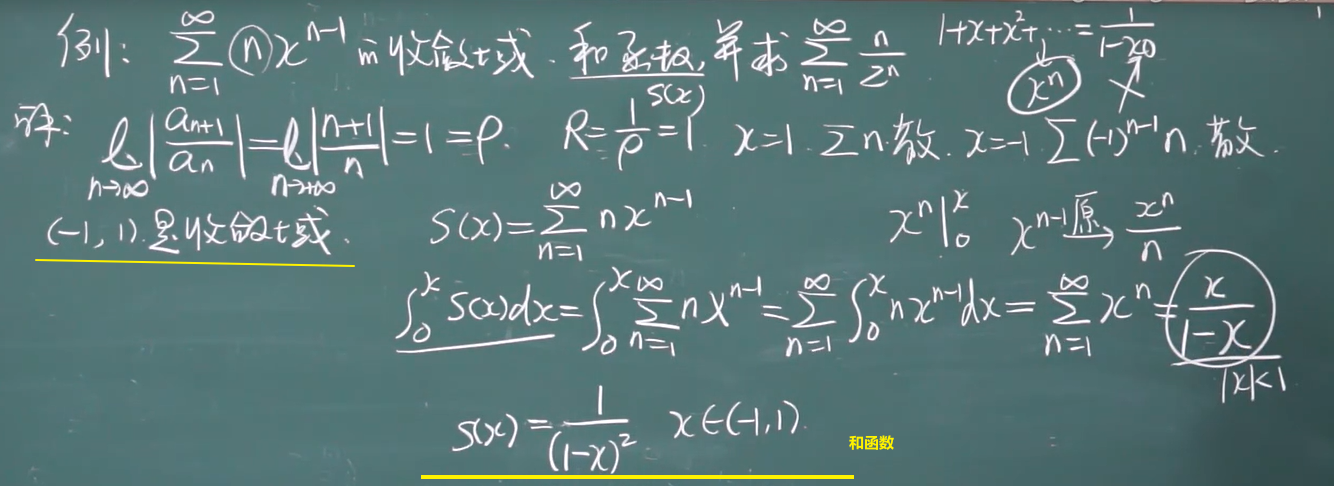 例: ∑_{n=1}^{∞} n x^{n-1} 的收敛域. 和函数, 并求 ∑_{n=1}^{∞} n/2^n
S(x)
1+x+x²+⋯=1/(1-x)
x^n
解: lim_{n→∞} |a_{n+1}/a_n| = lim_{n→+∞} |n+1/n| = 1 = ρ. R = 1/ρ = 1. x=1. ∑n. 散. x=-1. ∑(-1)^{n-1} n. 散.
(-1, 1). 是收敛域.
S(x) = ∑_{n=1}^{∞} n x^{n-1}
x^n |_0^x x^{n-1} 原→ x^n/n
∫_0^x S(x)dx = ∫_0^x ∑_{n=1}^{∞} n x^{n-1} = ∑_{n=1}^{∞} ∫_0^x n x^{n-1} dx = ∑_{n=1}^{∞} x^n = x/(1-x)
|x|<1
S(x) = 1/(1-x)² x∈(-1,1).
和函数